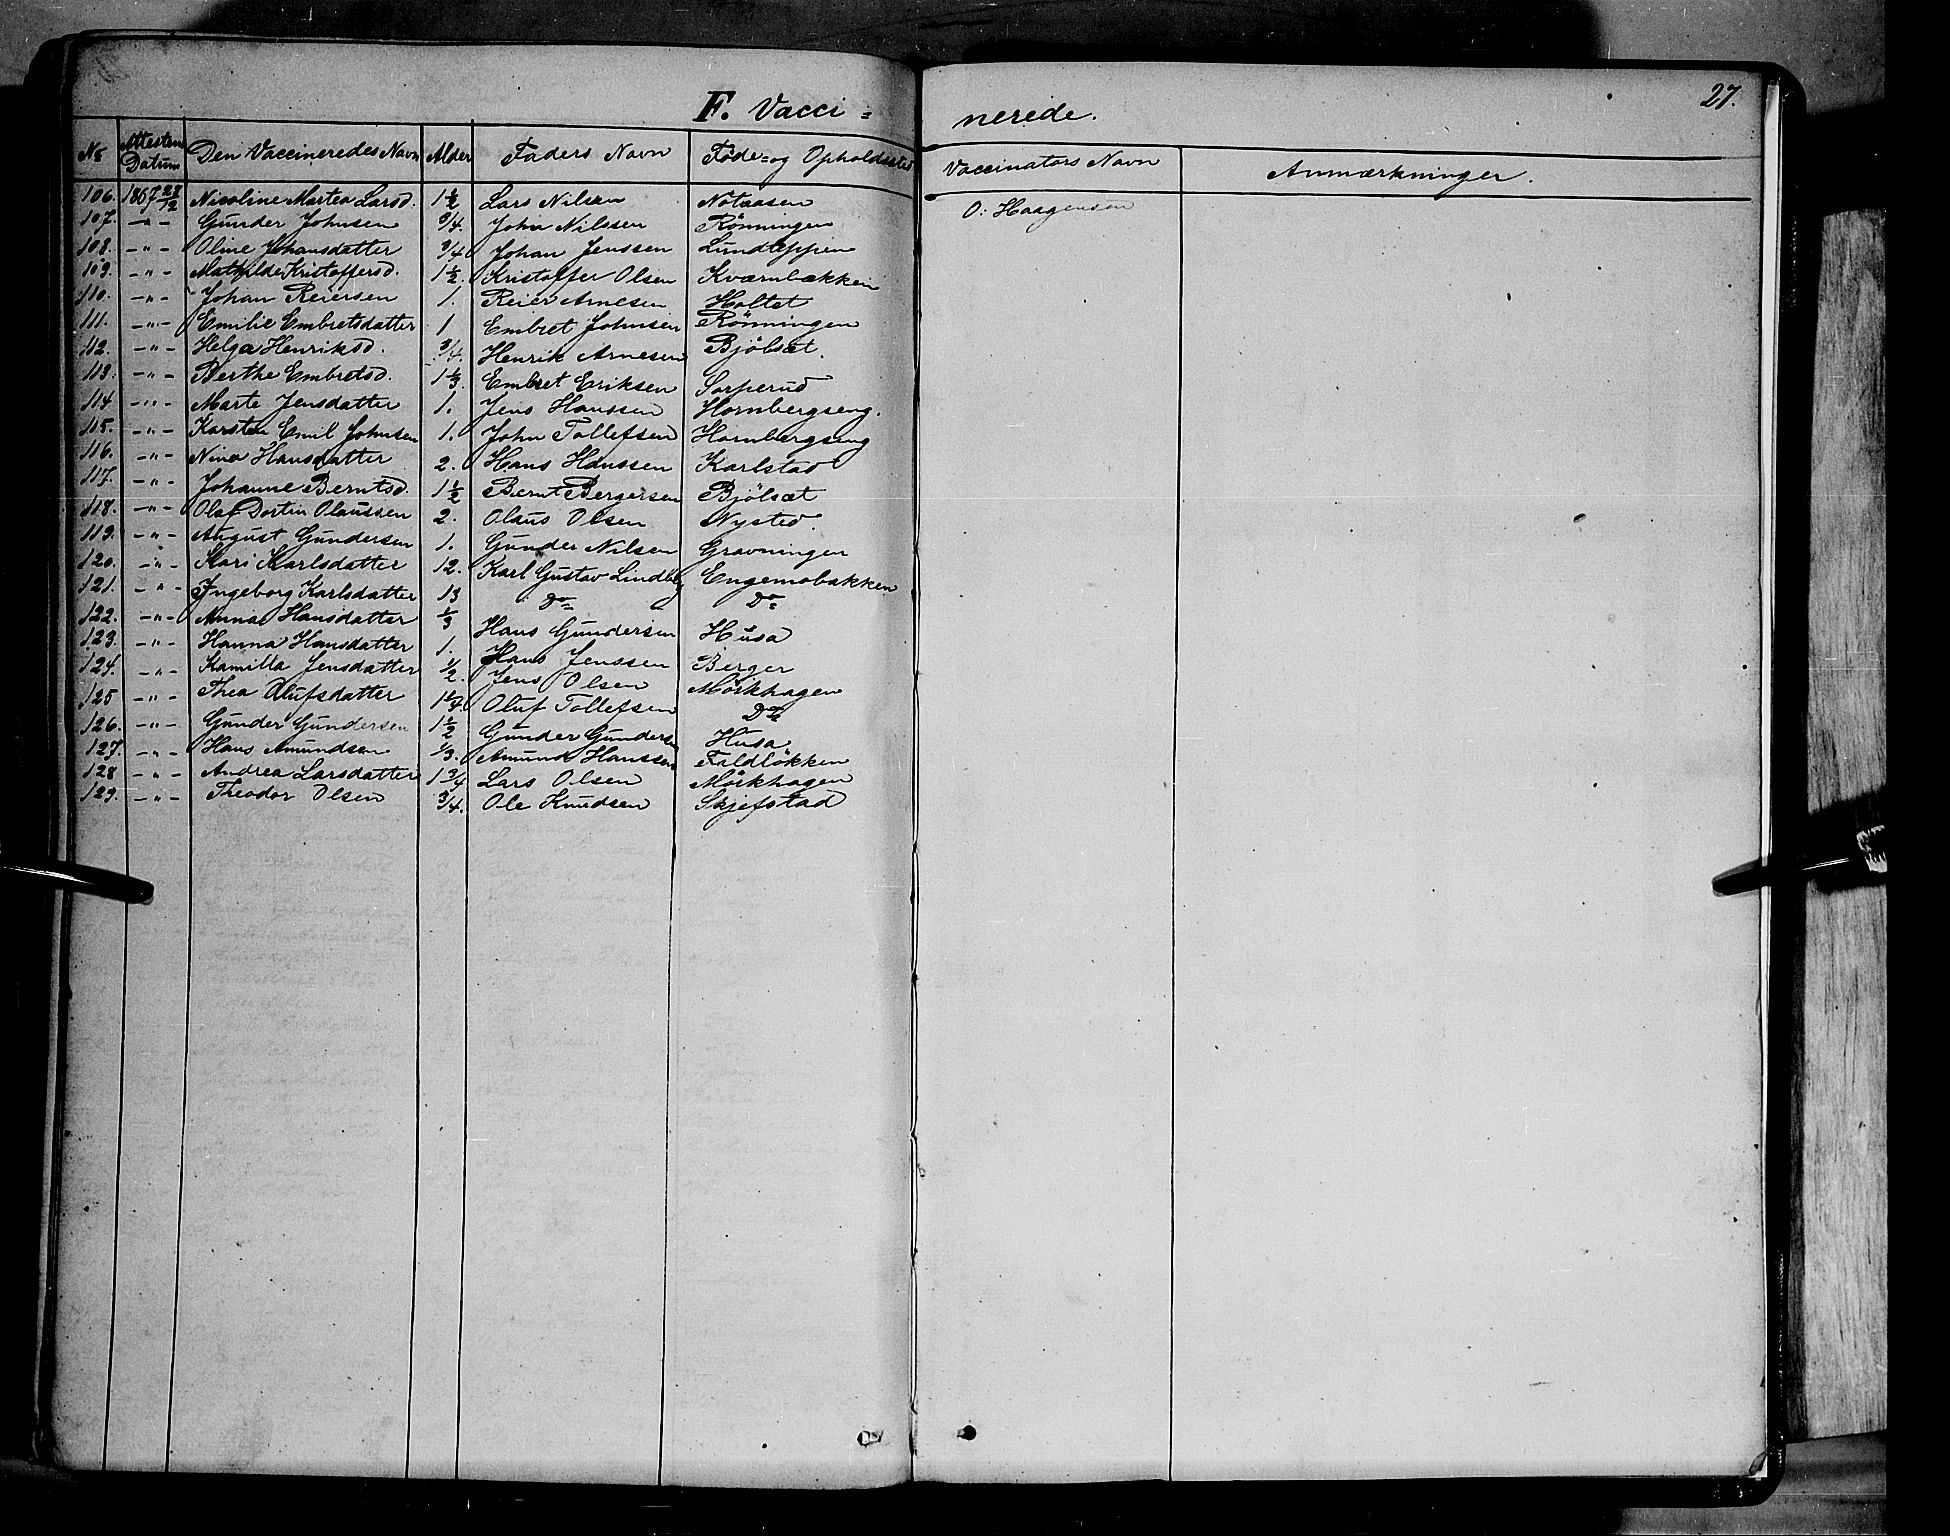 F. Vacci=
nerede.
27.
No Attesten Datum Den Vaccineredes Navn Alder Faders Navn Føde= og Opholdssted Vaccinators Navn Anmærkninger.
106. 1867 28/12 Nicoline Martea Larsd. 1 1/2 Lars Nilsen Notaasen O: Haagensen
107. -"- Gunder Johnsen 3/4. John Nilssen Rönningen
108. -"- Oline Johansdatter 3/4 Johan Jenssen Lundteppen
109. -"- Mathilde Kristoffersd. 1 1/2. Kristoffer Olsen Kværnbækken
110. -"- Johan Reiersen 1. Reier Arnesen Holtet
111. -"- Emilie Embretsdatter 1 Embret Johnsen Rönningen
112. -"- Helga Henriksd. 3/4. Henrik Arnesen Bjölsæt.
113. -"- Berthe Embretsd. 1 1/3. Embret Eriksen Sorperud
114 -"- Marte Jensdatter 1. Jens Hanssen Hornbergseng.
115. -"- Karsten Emil Johnsen 1. John Tollefsen Hornbergseng
116. -"- Nina Hansdatter 2. Hans Hanssen Karlstad
117. -"- Johanne Berntsd. 1 1/2 Bernt Bergersen Bjölsæt
118. -"- Olaf Dortin Olaussen 2. Olaus Olsen Nysted.
119. -"- August Gundersen 1. Gunder Nilsen Gravningen
120. -"- Kari Karlsdatter 12. Karl Gustav Lindberg Engemobakken
121. -"- Ingeborg Karlsdatter 13 Do= Do=
122. -"- Anna Hansdatter 1/3 Hans Gundersen Husa
123. -"- Hanna Hansdatter 1. Hans Jenssen Berger
124. -"- Kamilla Jensdatter 1/2. Jens Olsen Mörkhagen
125 -"- Thea Olufsdatter 1 1/4. Oluf Tollefsen Do=
126. -"- Gunder Gundersen 1 1/2 Gunder Gundersen Husa
127. -"- Hans Amundsen 1/3. Amund Hanssen Faldlökken
128 -"- Andrea Larsdatter 1 3/4 Lars Olsen Mörkhagen
129. -"- Theodor Olsen 3/4. Ole Knudsen Skjefstad